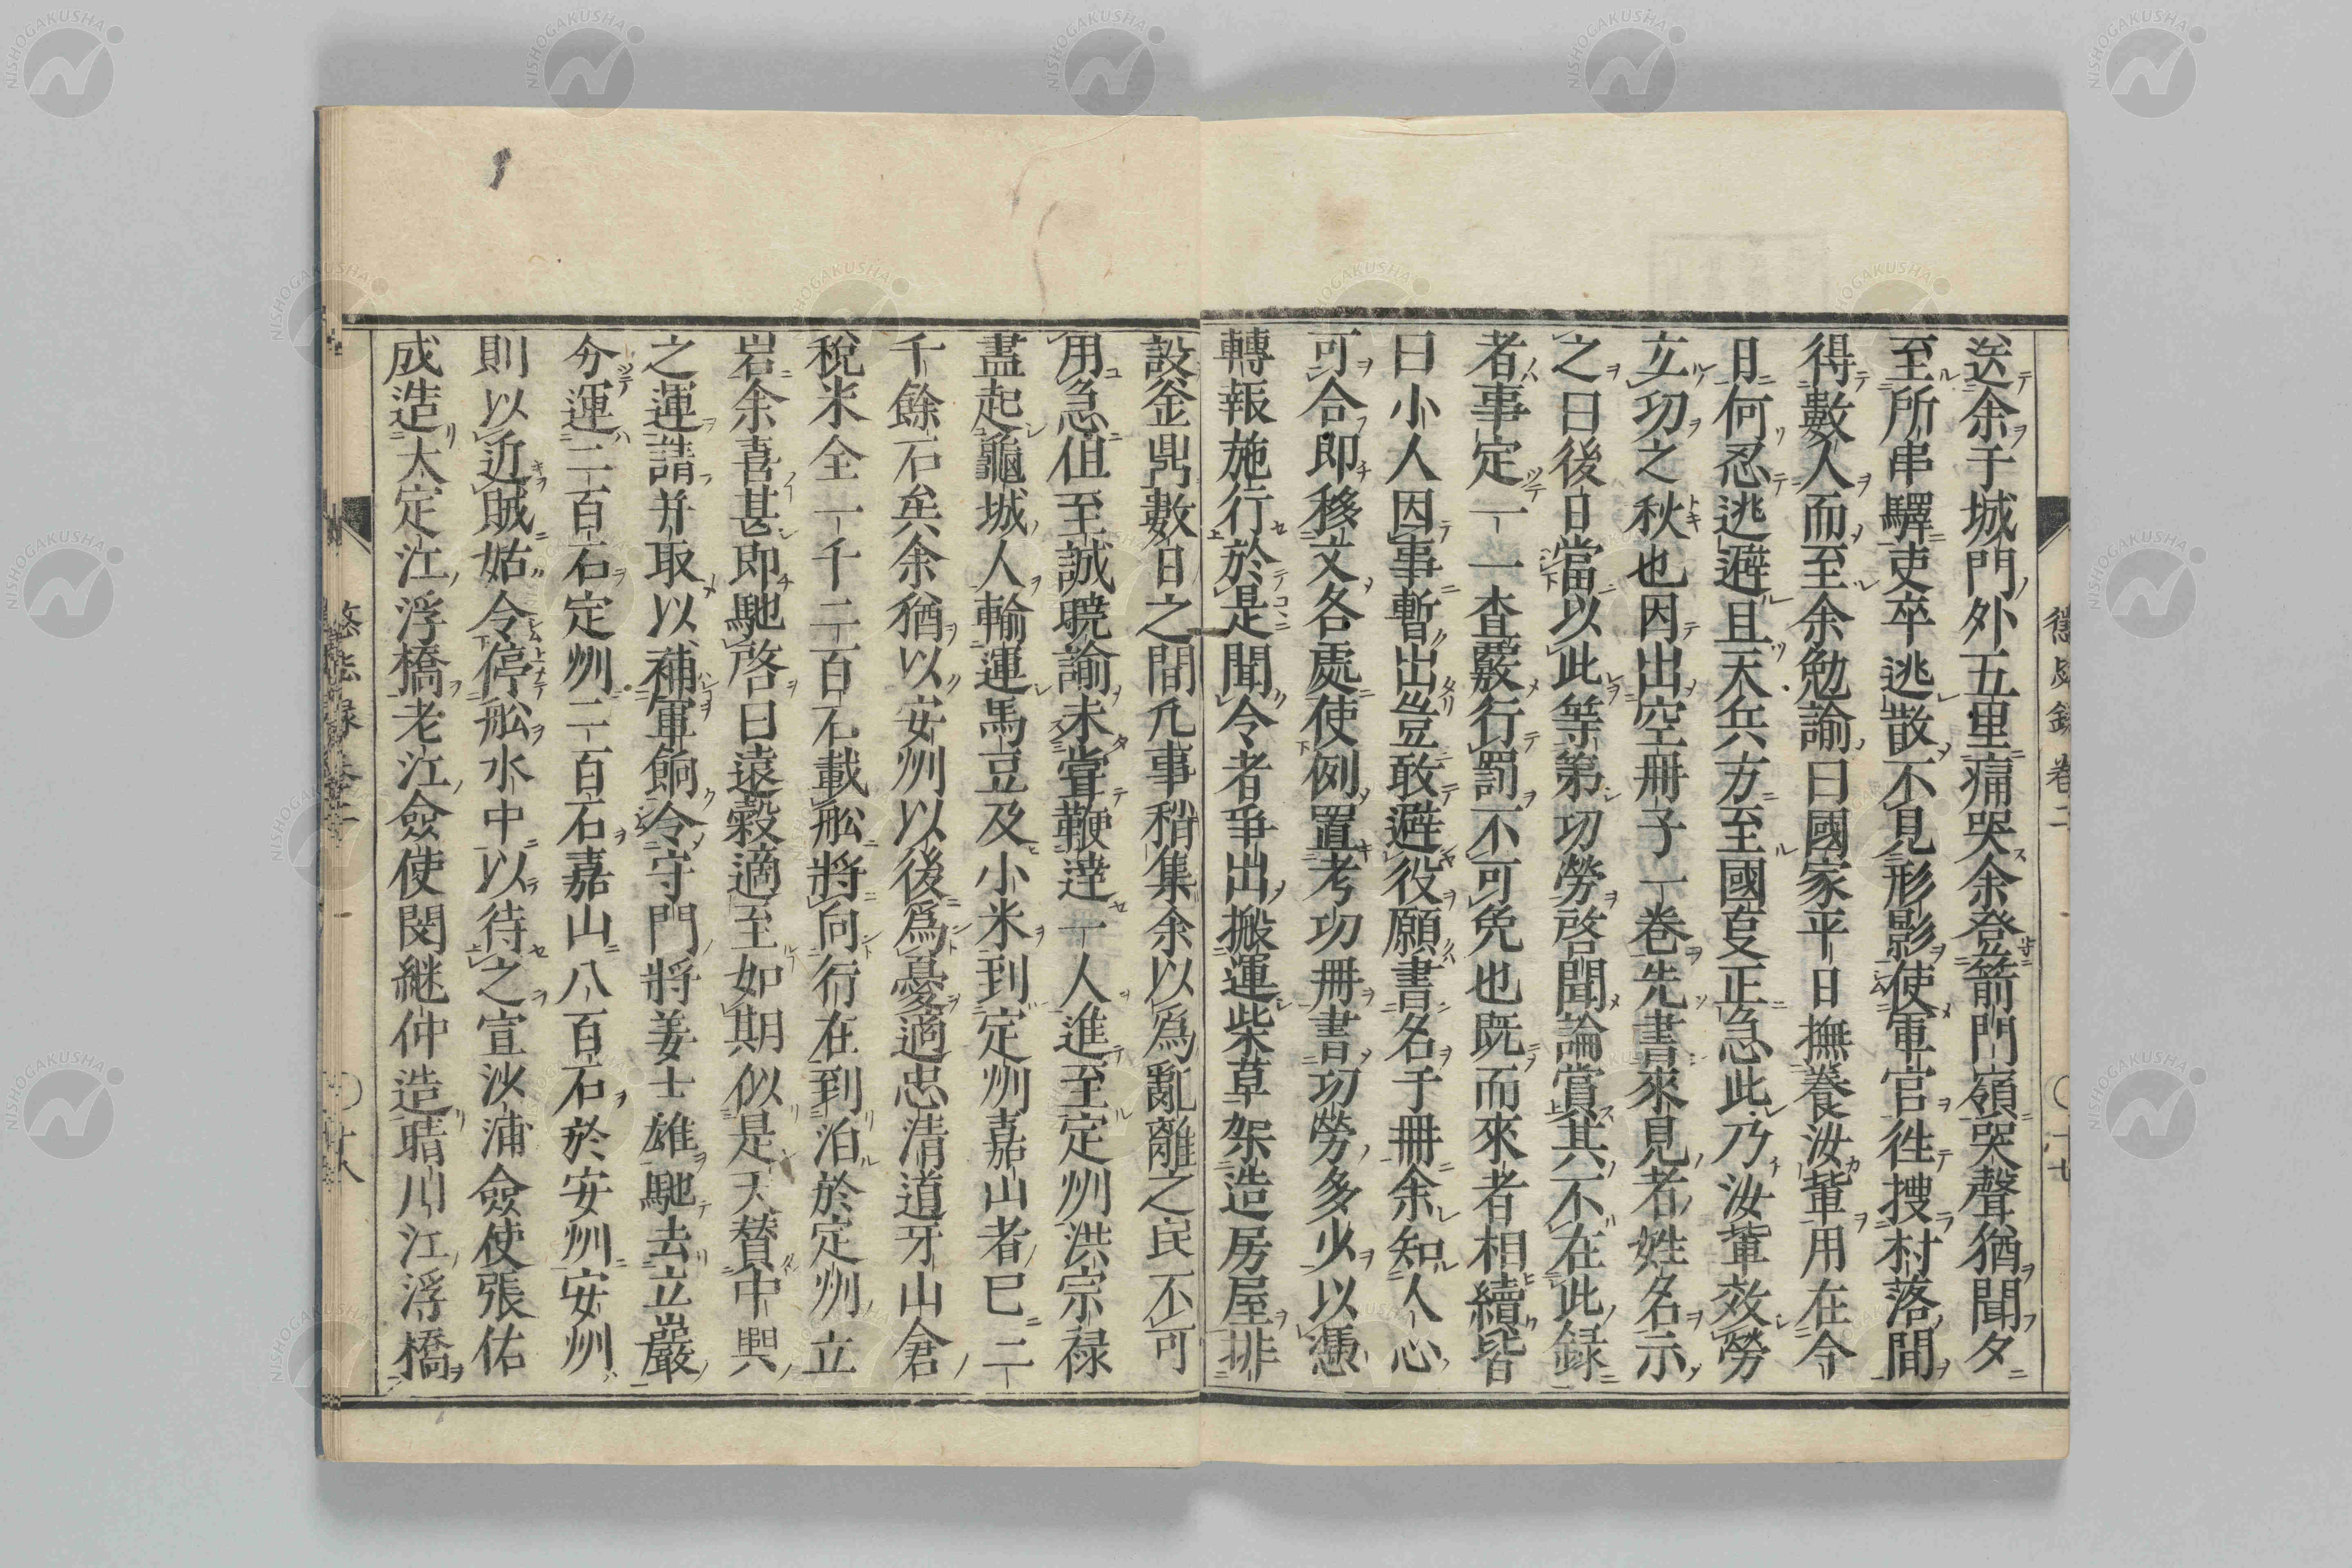 送余于城門外五里痛哭余登箭門嶺哭聲猶聞夕
至所串驛吏卒逃散不見形影使軍官徃搜村落間
得數人而至余勉諭曰國家平日撫養汝軰用在今
日何忍逃避且天兵方至國亙正急此乃汝軰效勞
立功之秋也因出空冊子一卷先書來見者姓名示
之曰後日當以此等第功勞啓聞論賞其不在此録
者事定一一查覈行罰不可免也既而來者相續皆
曰小人因事暫出豈敢避役願書名于冊余知人心
可合即移文各處使例置考功冊書功勞多少以憑
轉報施行於是聞令者爭出搬運柴草架造房屋排
設釜鼎數日之間凡事稍集余以爲亂離之民不可
用急但至誠曉諭未嘗鞭達一人進至定州洪宗禄
盡起龜城人輸運馬豆及小米到定州嘉山者已二
千餘石矣余猶以安州以後爲憂適忠清道牙山倉
稅米全一千二百石載舩將向行在到泊於定州立
岩余喜甚即馳啓曰遠穀適至如期似是天賛中興
之運請并取以補軍餉令守門將姜士雄馳去立巖
分運二百石定州二百石嘉山八百石於安州安州
則以近賊姑令停舩水中以待之宣沙浦僉使張佑
成造大定江浮橋老江僉使閔継仲造晴川江浮橋
懲毖録 卷二
NISHOGAKUSHA